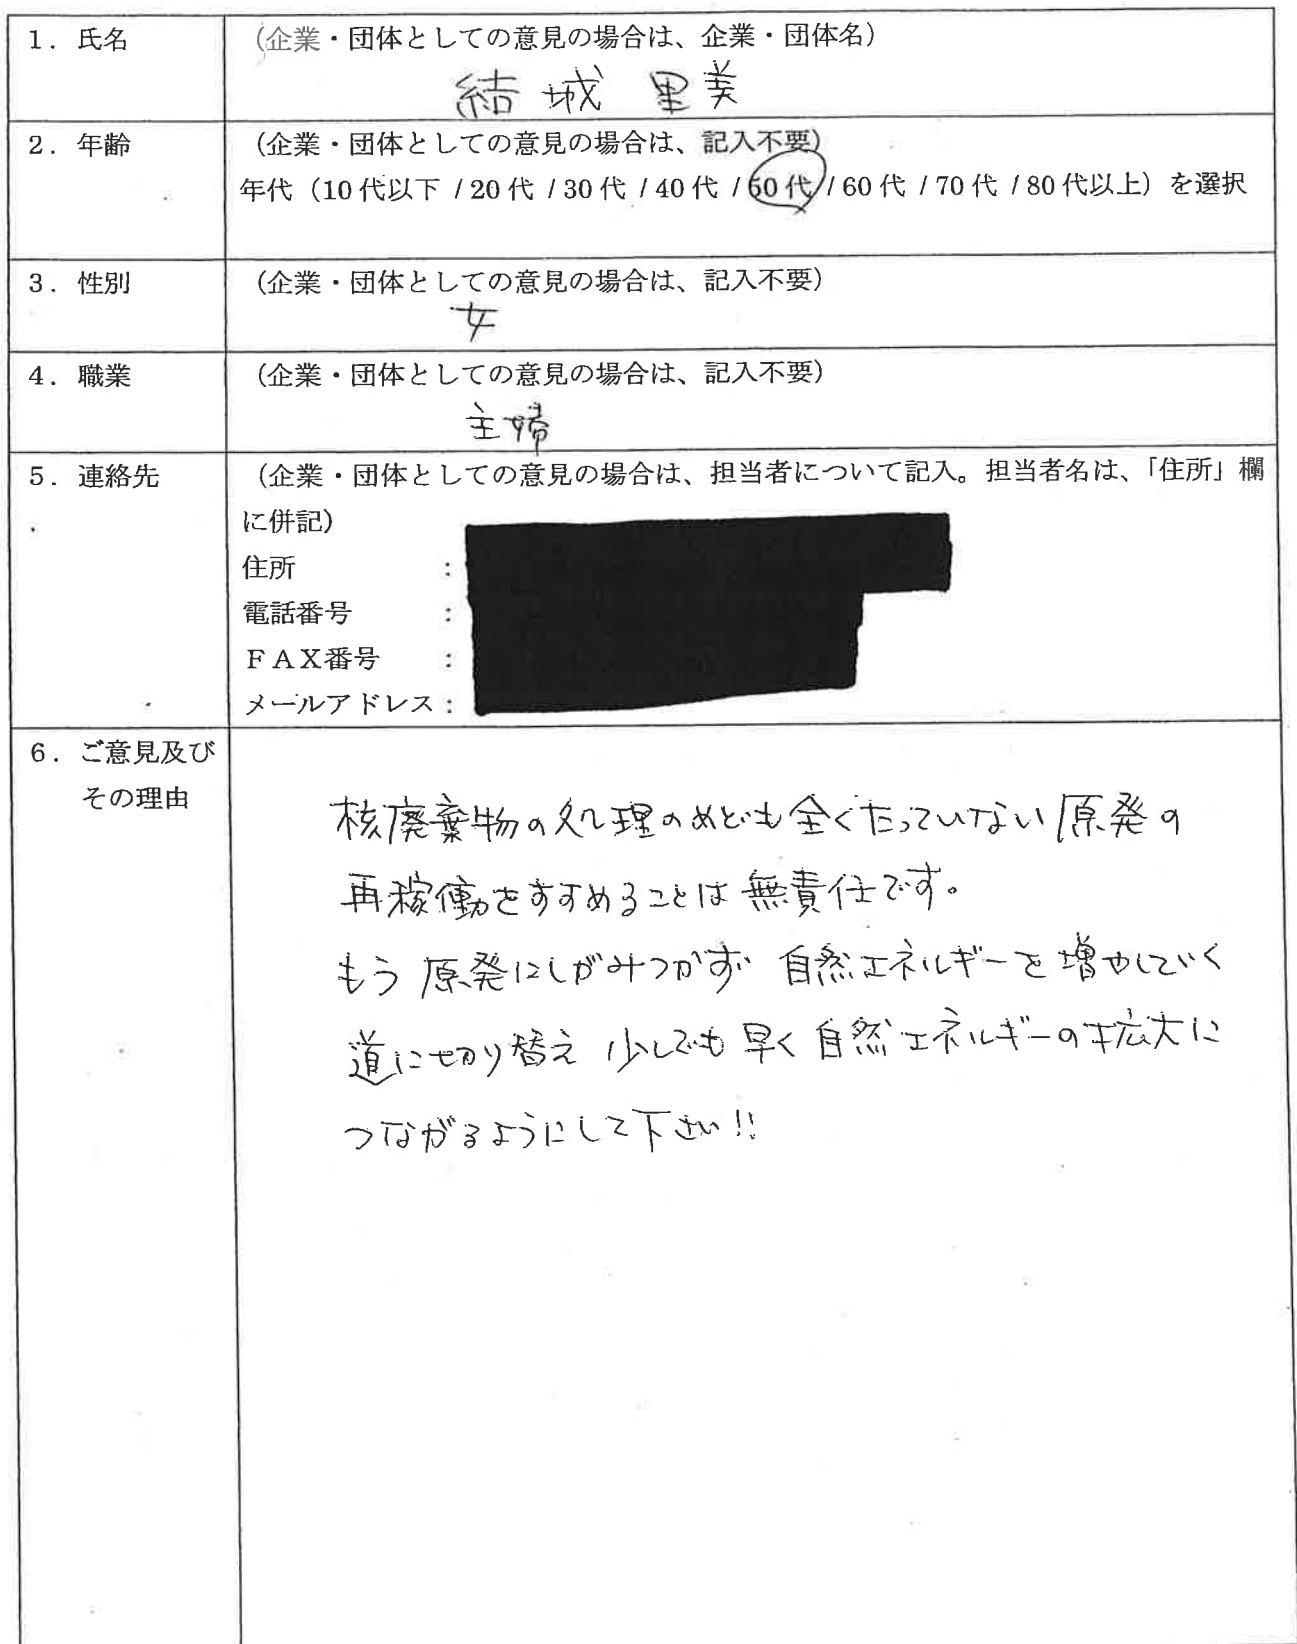 1．氏名
（企業・団体としての意見の場合は、企業・団体名）
結城 里美
2．年齢
（企業・団体としての意見の場合は、記入不要）
年代（10代以下 / 20代 / 30代 / 40代 / 50代 / 60代 / 70代 / 80代以上）を選択
3．性別
（企業・団体としての意見の場合は、記入不要）
女
4．職業
（企業・団体としての意見の場合は、記入不要）
主婦
5．連絡先
（企業・団体としての意見の場合は、担当者について記入。担当者名は、「住所」欄
に併記）
住所 ：
電話番号 ：
ＦＡＸ番号 ：
メールアドレス：
6．ご意見及び
その理由
核廃棄物の処理のめども全くたっていない原発の
再稼働をすすめることは無責任です。
もう原発にしがみつかず 自然エネルギーを増やしていく
道に切り替え 少しでも早く自然エネルギーの拡大に
つながるようにして下さい!!